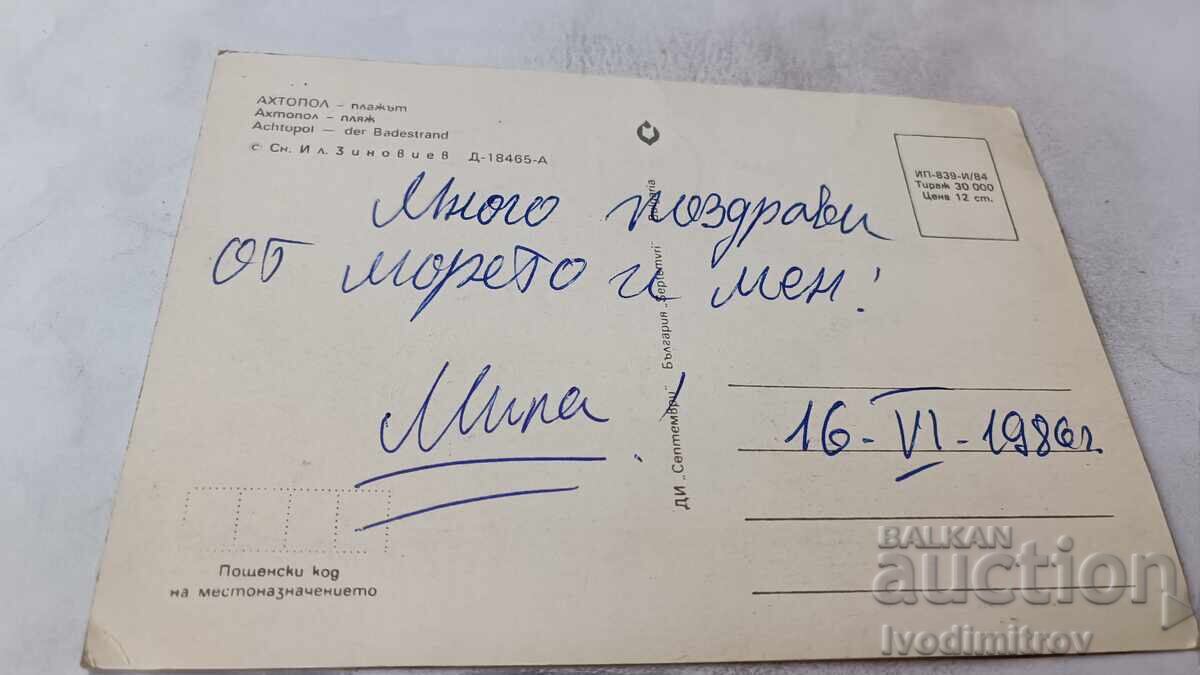 АХТОПОЛ – плажът
Ахтопол – пляж
Achtopol — der Badestrand
© Сн. Ил. Зиновиев Д-18465-А
ИП-839-И/84
Тираж 30 000
Цена 12 ст.
Много поздрави
от морето и мен!
ДИ „Септември" България „Septemvri" Bulgaria
16-VI-1986г.
Пощенски код
на местоназначението
BALKAN
auction
Ivodimitrov